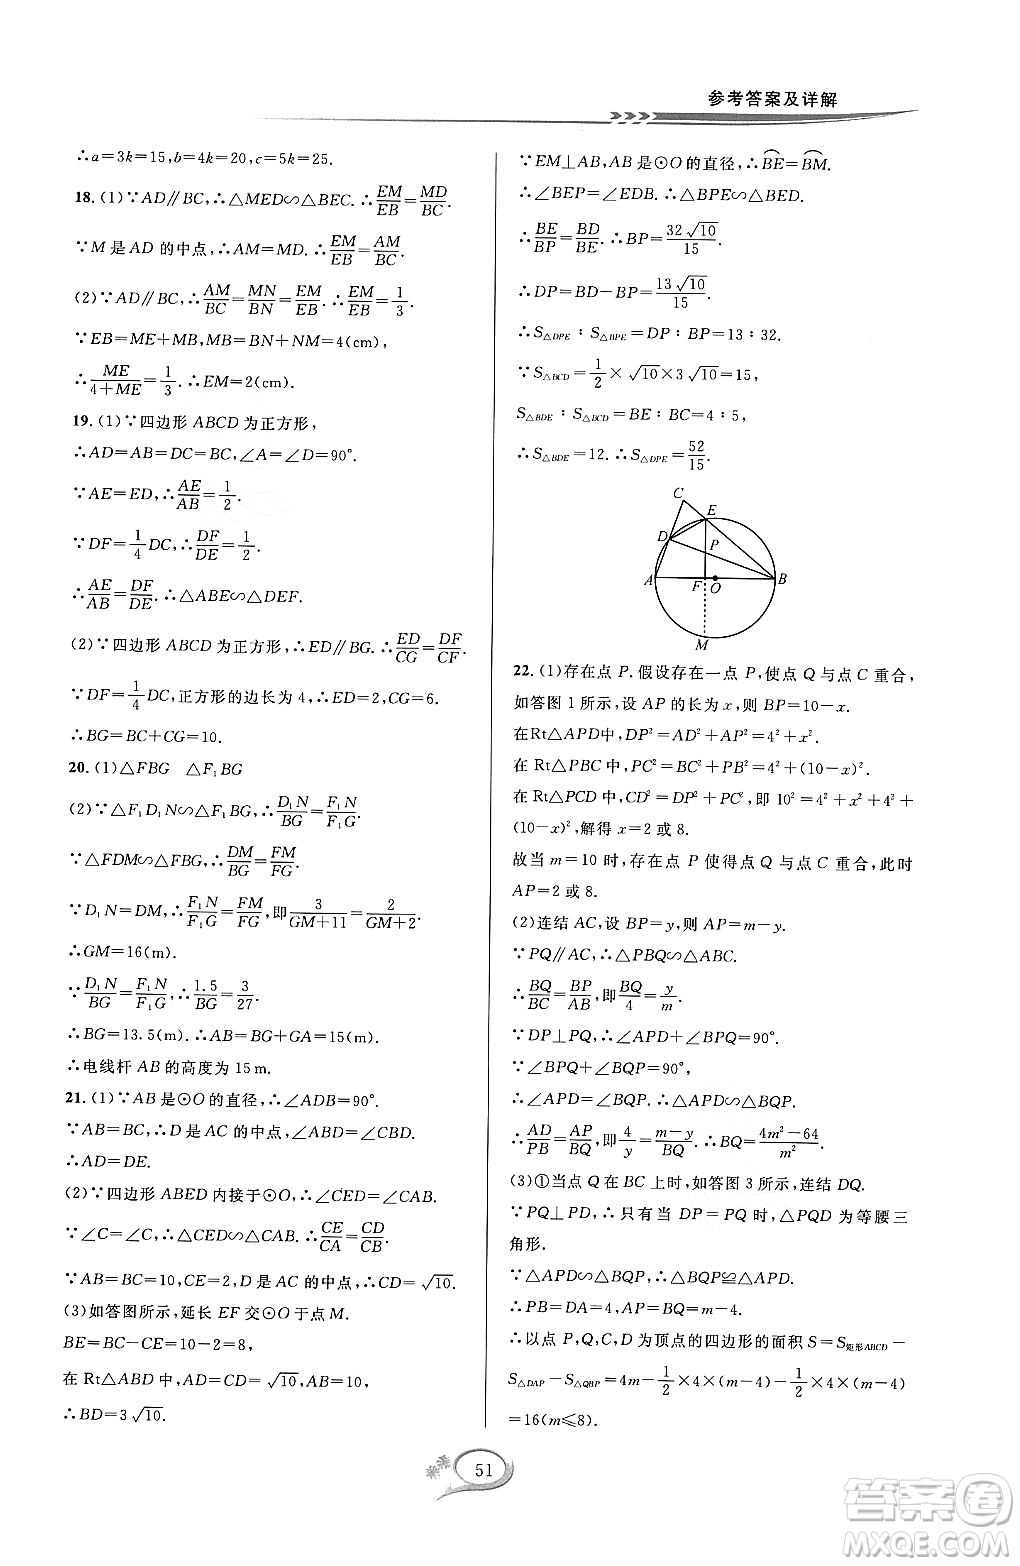 参考答案及详解
∴a=3k=15,b=4k=20,c=5k=25.
18. (1)∵AD∥BC,∴△MED∽△BEC.∴EM/EB=MD/BC.
∵M 是 AD 的中点,∴AM=MD.∴EM/EB=AM/BC.
(2)∵AD∥BC,∴AM/BC=MN/BN=EM/EB.∴EM/EB=1/3.
∵EB=ME+MB,MB=BN+NM=4(cm),
∴ME/(4+ME)=1/3.∴EM=2(cm).
19. (1)∵四边形 ABCD 为正方形,
∴AD=AB=DC=BC,∠A=∠D=90°.
∵AE=ED,∴AE/AB=1/2.
∵DF=1/4DC,∴DF/DE=1/2.
∴AE/AB=DF/DE.∴△ABE∽△DEF.
(2)∵四边形 ABCD 为正方形,∴ED∥BG.∴ED/CG=DF/CF.
∵DF=1/4DC,正方形的边长为 4,∴ED=2,CG=6.
∴BG=BC+CG=10.
20. (1)△FBG △F₁BG
(2)∵△F₁D₁N∽△F₁BG,∴D₁N/BG=F₁N/F₁G.
∵△FDM∽△FBG,∴DM/BG=FM/FG.
∵D₁N=DM,∴F₁N/F₁G=FM/FG,即3/(GM+11)=2/(GM+2).
∴GM=16(m).
∵D₁N/BG=F₁N/F₁G,∴1.5/BG=3/27.
∴BG=13.5(m).∴AB=BG+GA=15(m).
∴电线杆 AB 的高度为 15 m.
21. (1)∵AB 是⊙O 的直径,∴∠ADB=90°.
∵AB=BC,∴D 是 AC 的中点,∠ABD=∠CBD.
∴AD=DE.
(2)∵四边形 ABED 内接于⊙O,∴∠CED=∠CAB.
∵∠C=∠C,∴△CED∽△CAB.∴CE/CA=CD/CB.
∵AB=BC=10,CE=2,D 是 AC 的中点,∴CD=√10.
(3)如答图所示,延长 EF 交⊙O 于点 M.
BE=BC−CE=10−2=8,
在 Rt△ABD 中,AD=CD=√10,AB=10,
∴BD=3√10.
∵EM⊥AB,AB 是⊙O 的直径,∴B͡E=B͡M.
∴∠BEP=∠EDB.∴△BPE∽△BED.
∴BE/BP=BD/BE.∴BP=32√10/15.
∴DP=BD−BP=13√10/15.
∴S△DPE∶S△BPE=DP∶BP=13∶32.
∵S△BCD=1/2×√10×3√10=15,
S△BDE∶S△BCD=BE∶BC=4∶5,
∴S△BDE=12.∴S△DPE=52/15.
C
E
D
P
A
F
O
B
M
22. (1)存在点 P.假设存在一点 P,使点 Q 与点 C 重合,
如答图 1 所示,设 AP 的长为 x,则 BP=10−x.
在Rt△APD 中,DP²=AD²+AP²=4²+x².
在 Rt△PBC 中,PC²=BC²+PB²=4²+(10−x)².
在 Rt△PCD 中,CD²=DP²+PC²,即 10²=4²+x²+4²+
(10−x)²,解得 x=2 或 8.
故当 m=10 时,存在点 P 使得点 Q 与点 C 重合,此时
AP=2 或 8.
(2)连结 AC,设 BP=y,则 AP=m−y.
∵PQ∥AC,∴△PBQ∽△ABC.
∴BQ/BC=BP/AB,即BQ/4=y/m.
∵DP⊥PQ,∴∠APD+∠BPQ=90°.
∵∠BPQ+∠PQB=90°,∴∠APD=∠PQB.
∵∠APD=∠PQB.∴△APD∽△BQP.
∴AD/PB=AP/BQ,即4/y=(m−y)/BQ.∴BQ=(4m²−64)/m².
(3)①当点 Q 在 BC 上时,如答图 3 所示,连结 DQ.
∵PQ⊥PD,∴只有当 DP=PQ 时,△PQD 为等腰三
角形.
∵△APD∽△BQP,∴△BQP≌△APD.
∴PB=DA=4,AP=BQ=m−4.
∴以点 P,Q,C,D 为顶点的四边形的面积 S=S矩形ABCD−
S△DAP−S△QBP=4m−1/2×4×(m−4)−1/2×4×(m−4)
=16(m≤8).
51
答案圈
MXQE.COM